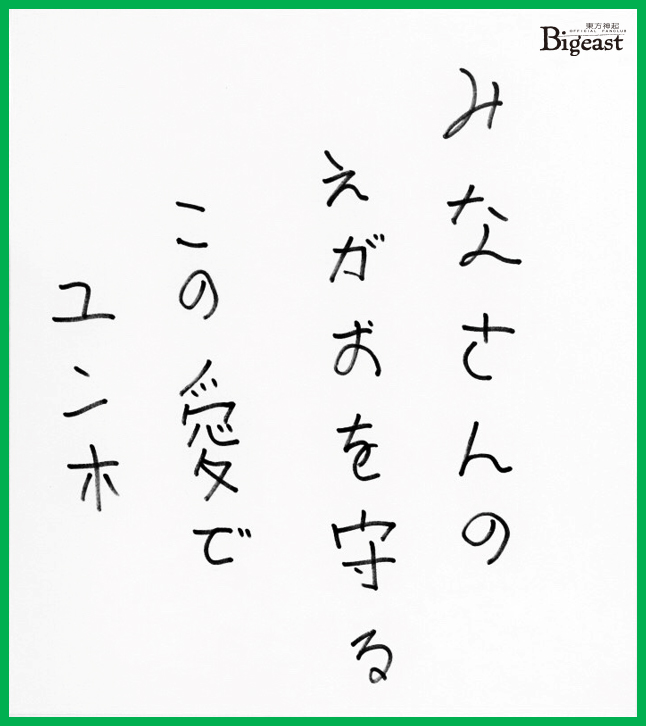 東方神起
OFFICIAL FANCLUB
Bigeast
みなさんの
えがおを守る
この愛で
ユンホ